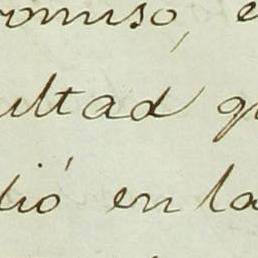 romiso, e
ultad q
dió en la